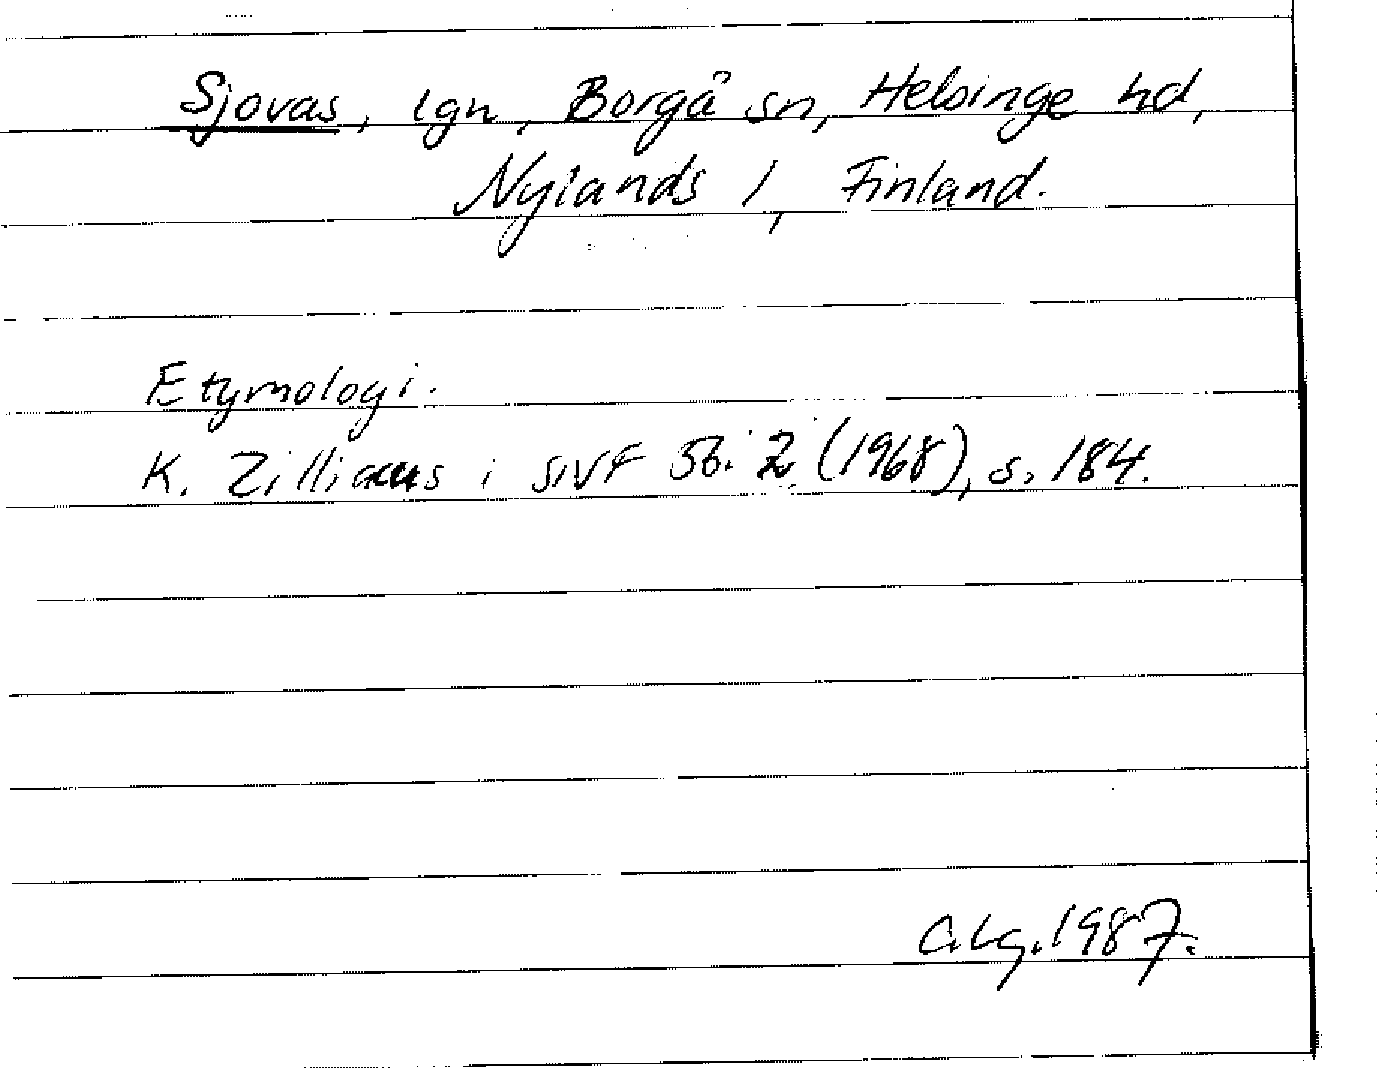 Sjovas, lgn, Borgå sn, Helsinge hd,
Nylands l, Finland.
Etymologi.
K. Zilliacus i SNF 56:2 (1968), s. 184.
C.Lg. 1987.